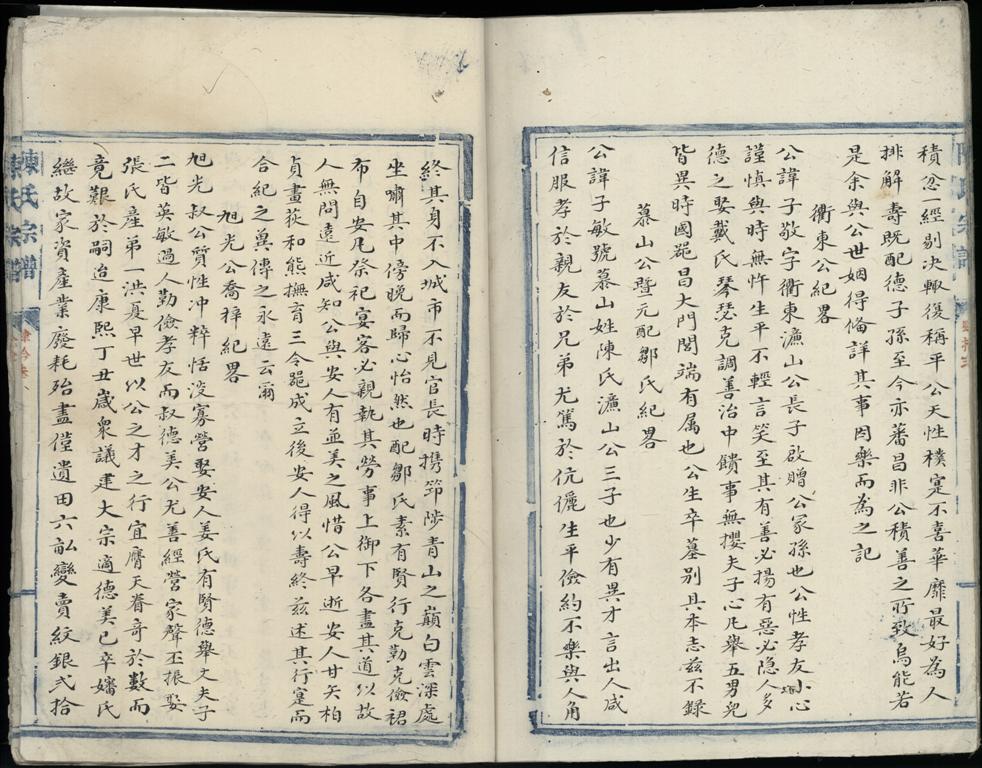 積忿一經剔决輙復稱平公天性樸寔不喜華靡最好為人
排解壽既配德子孫至今亦蕃昌非公積善之所致烏能若
是余與公世姻得俻詳其事因樂而為之記
衢東公紀畧
公諱子敬字衢東濂山公長子啟贈公冡孫也公性孝友小心
謹慎與時無忤生平不輕言笑至其有善必揚有惡必隐人多
德之娶戴氏琴瑟克調善治中饋事無攖夫子心凡舉五男兒
皆異時國噐昌大門閭端有属也公生卒墓別具本志兹不錄
慕山公暨元配鄒氏紀畧
公諱子敏號慕山姓陳氏濂山公三子也少有異才言出人咸
信服孝於親友於兄弟尤篤於伉儷生平儉約不樂與人角
終其身不入城市不見官長時携笻陟青山之巔白雲深處
坐嘯其中傍晚而歸心怡然也配鄒氏素有賢行克勤克儉裙
布自安凡祭祀宴客必親執其勞事上御下各盡其道以故
人無問遠近咸知公與安人有並美之風惜公早逝安人甘矢柏
貞畫荻和熊撫育三令噐成立後安人得以壽終兹述其行寔而
合紀之兾傳之永遠云爾
旭光公喬梓紀畧
旭光叔公質性冲粹恬没寡營娶安人姜氏有賢德舉丈夫子
二皆英敏過人勤儉孝友而叔德美公尤善經營家聲丕振娶
張氏產弟一洪夏早世以公之才之行宜膺天眷奇於數而
竟艱於嗣迨康熙丁丑歲衆議建大宗適德美已卒嬸氏
繼故家資產業廢耗殆盡僅遺田六畆變賣紋銀弍拾
陳氏宗譜